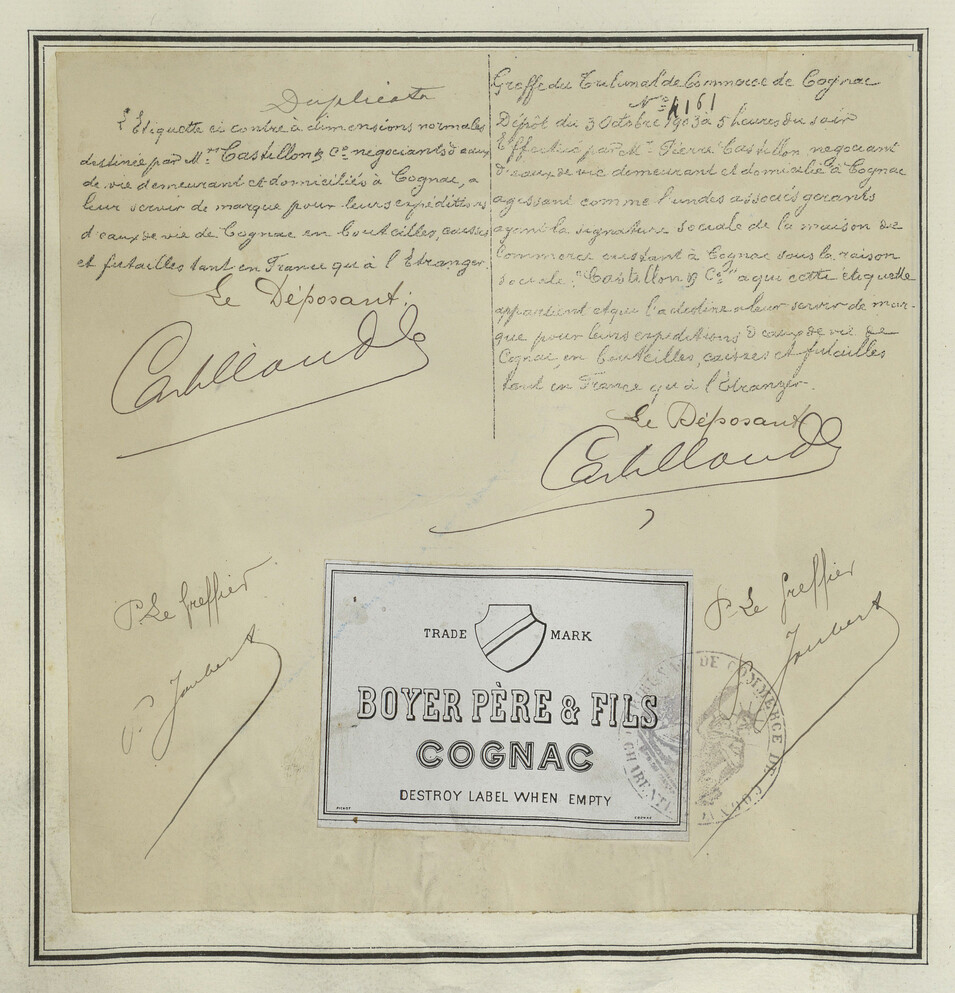 Duplicata
L'Etiquette ci contre à dimensions normales
destinée par M.rs Castillon & C.o negociants d'eaux
de vie demeurant et domiciliés à Cognac, a
leur servir de marque pour leurs expéditions
d'eaux de vie de Cognac en bouteilles, caisses
et futailles tant en France qu'à l'Etranger.
Le Déposant:
P. Le Greffier
P. Joubert
Greffe du Tribunal de Commerce de Cognac
N.o 4161
Dépôt du 3 Octobre 1903 à 5 heures du soir
Effectué par M.r Pierre Castillon, negociant
d'eaux de vie demeurant et domicilié à Cognac
agissant comme l'un des associés gerants
ayant la signature sociale de la maison de
Commerce existant à Cognac sous la raison
sociale "Castillon & C.o" a qui cette étiquette
appartient et qui l'a destine a leur servir de mar-
que pour leurs expeditions d'eaux de vie de
Cognac, en bouteilles, caisses et futailles
tant en France qu'à l'Etranger.
Le Déposant
P. Le Greffier
Joubert
TRADE MARK
BOYER PÈRE & FILS
COGNAC
DESTROY LABEL WHEN EMPTY
DE COMMERCE DE
CHARENTE